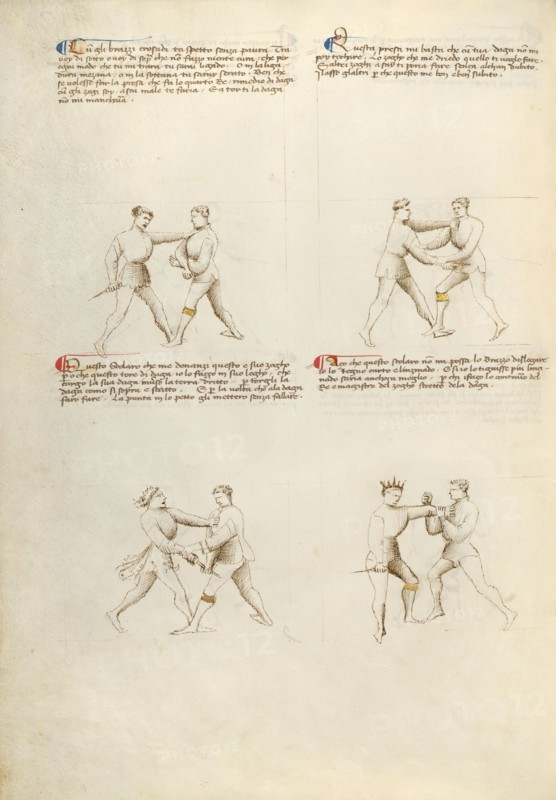 Cum gli brazzi crosadi tu spetto senza paura. Tra
voy di soto o voy di sopra che non fazzo niente cura. che per
ogni modo che tu mi trara tu sarai ligado. O in la liga
dura mezana, o in la sottana tu sarai serato. Ben che
se volesse far la presa che fa lo quarto Re. rimedio di daga
cum gli zoghi soy. assai male te faria. E a tor ti la daga
non mi mancharia.
Questa presa mi basta che cum tua daga non mi
poy tochare. Lo zogho che me driedo quello ti voglio fare.
E altri zoghi assay ti poria fare senza alchun dubito.
lasso gl'altri perche questo me bon e ben subito.
Questo Scolaro che me denanzi questo e suo zogho
pero che questo tore di daga io lo fazzo in suo logho, che
turzo la sua daga inverso la terra dritto. per torgli la
daga como si sopra e scritto. E per la volta che ala daga
faro fare. La punta in lo petto gli mettero senza fallare.
Aço che questo scolaro non mi possa lo brazzo dislogare
io lo tegno curto e inzinado. E si io lo tignisse piu inzi-
nado saria anchora meglio. perche i' fazo lo contrario del
Re e magistro del zogho stretto dela daga.